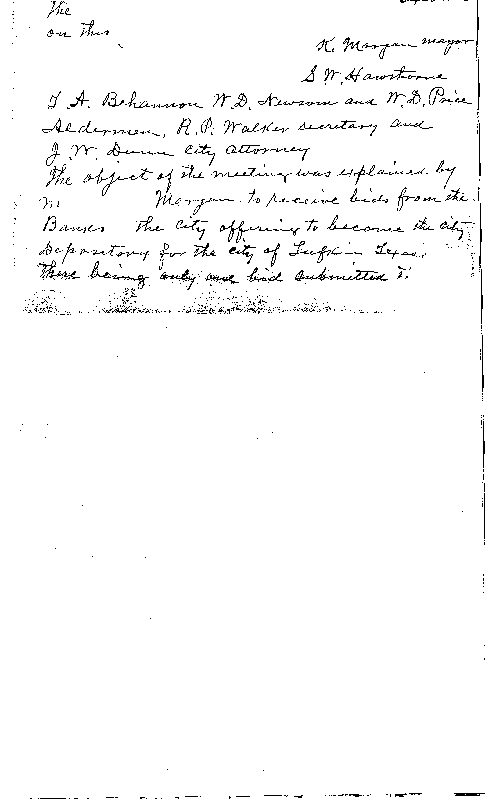 The
on this
K. Morgan mayor
S. W. Hawthorne
T A. Bohannon W. D. Newsom and W. D. Price
Aldermen, R. P. Walker secretary and
J. W. Dunn city attorney
The object of the meeting was explained by
M Morgan to receive bids from the
Banks the city offering to become the city
Depository for the city of Lufkin Texas.
There being only one bid submitted